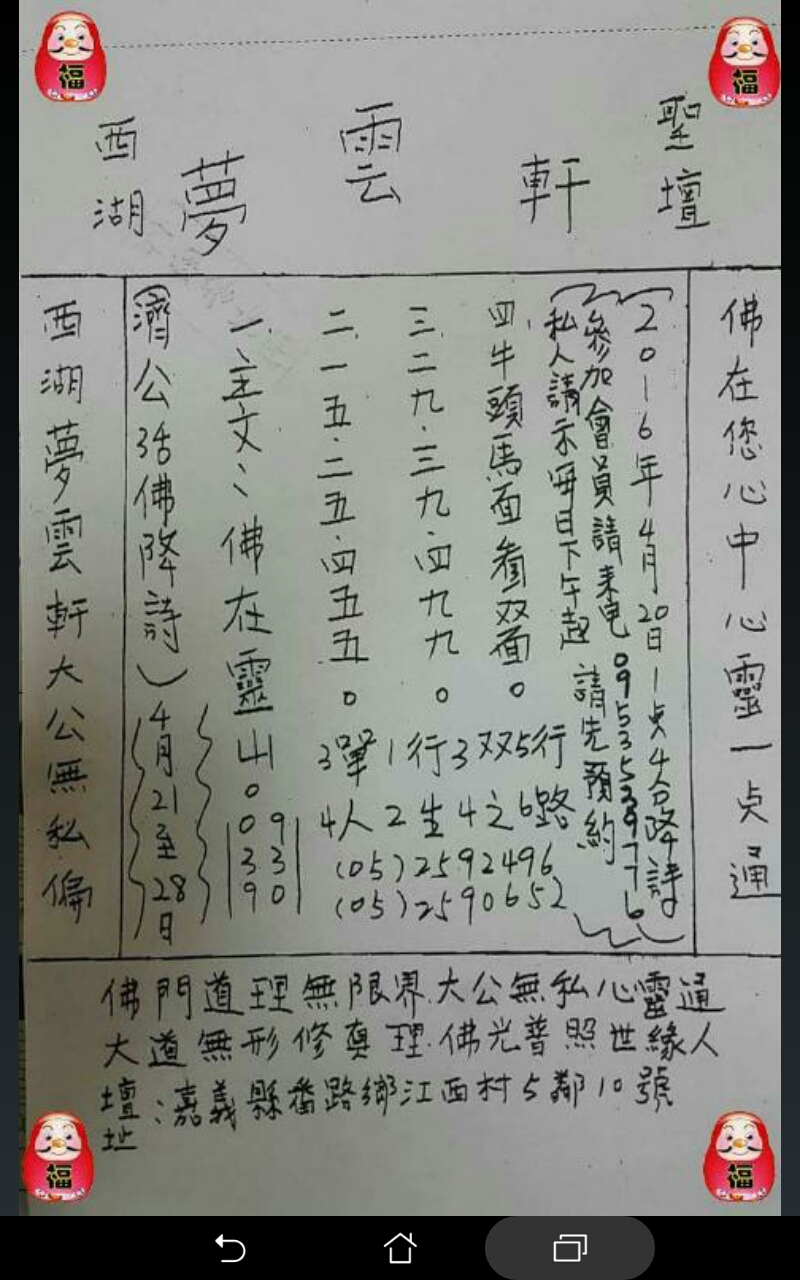 西湖 夢雲軒 聖壇
福
福
佛在您心中心靈一点通
(2016年4月20日1点4分降詩
參加會員請來電0953539776
私人請示每日下午起 請先預約)
四.牛頭馬面看双面。
三.二九.三九.四九九。
二.一五.二五.四五五。
3單1行3双5行
4人2生4之6路
(05)2592496
(05)2590652
一.主文:佛在靈山。
09
33
90
(濟公活佛降詩)
4月21至28日
西湖夢雲軒大公無私偏
佛門道理無限界.大公無私心靈通
大道無形修真理.佛光普照世緣人
壇址:嘉義縣番路鄉江西村5鄰10號
福
福